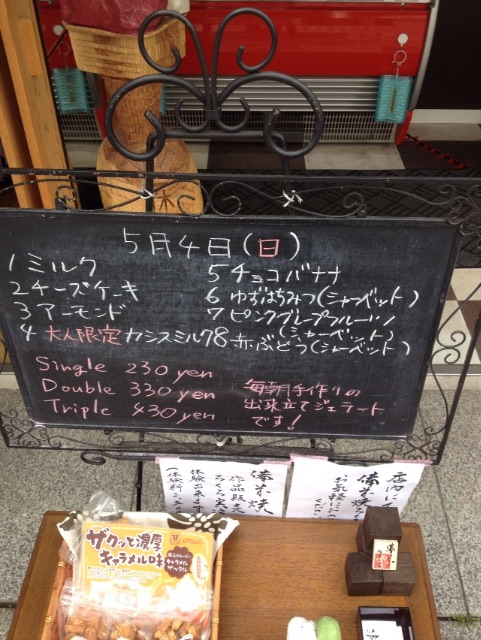 5月4日(日)
1 ミルク
2 チーズケーキ
3 アーモンド
4 大人限定カシスミルク
5 チョコバナナ
6 ゆずはちみつ(シャーベット)
7 ピンクグレープフルーツ
(シャーベット)
8 赤ぶどう(シャーベット)
Single 230 yen
Double 330 yen
Triple 430 yen
毎朝手作りの
出来立てジェラート
です!
備前焼
作品販売
ろくろ体験
体験出来ます
店内に
備前焼
お気軽に
ザクッと濃厚
キャラメル味
キャラメル
ザックル